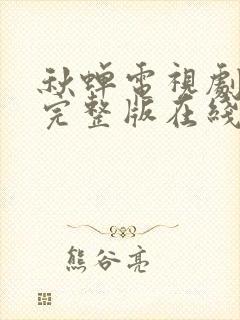 秋蟬電視劇
完整版在綫
熊谷亮